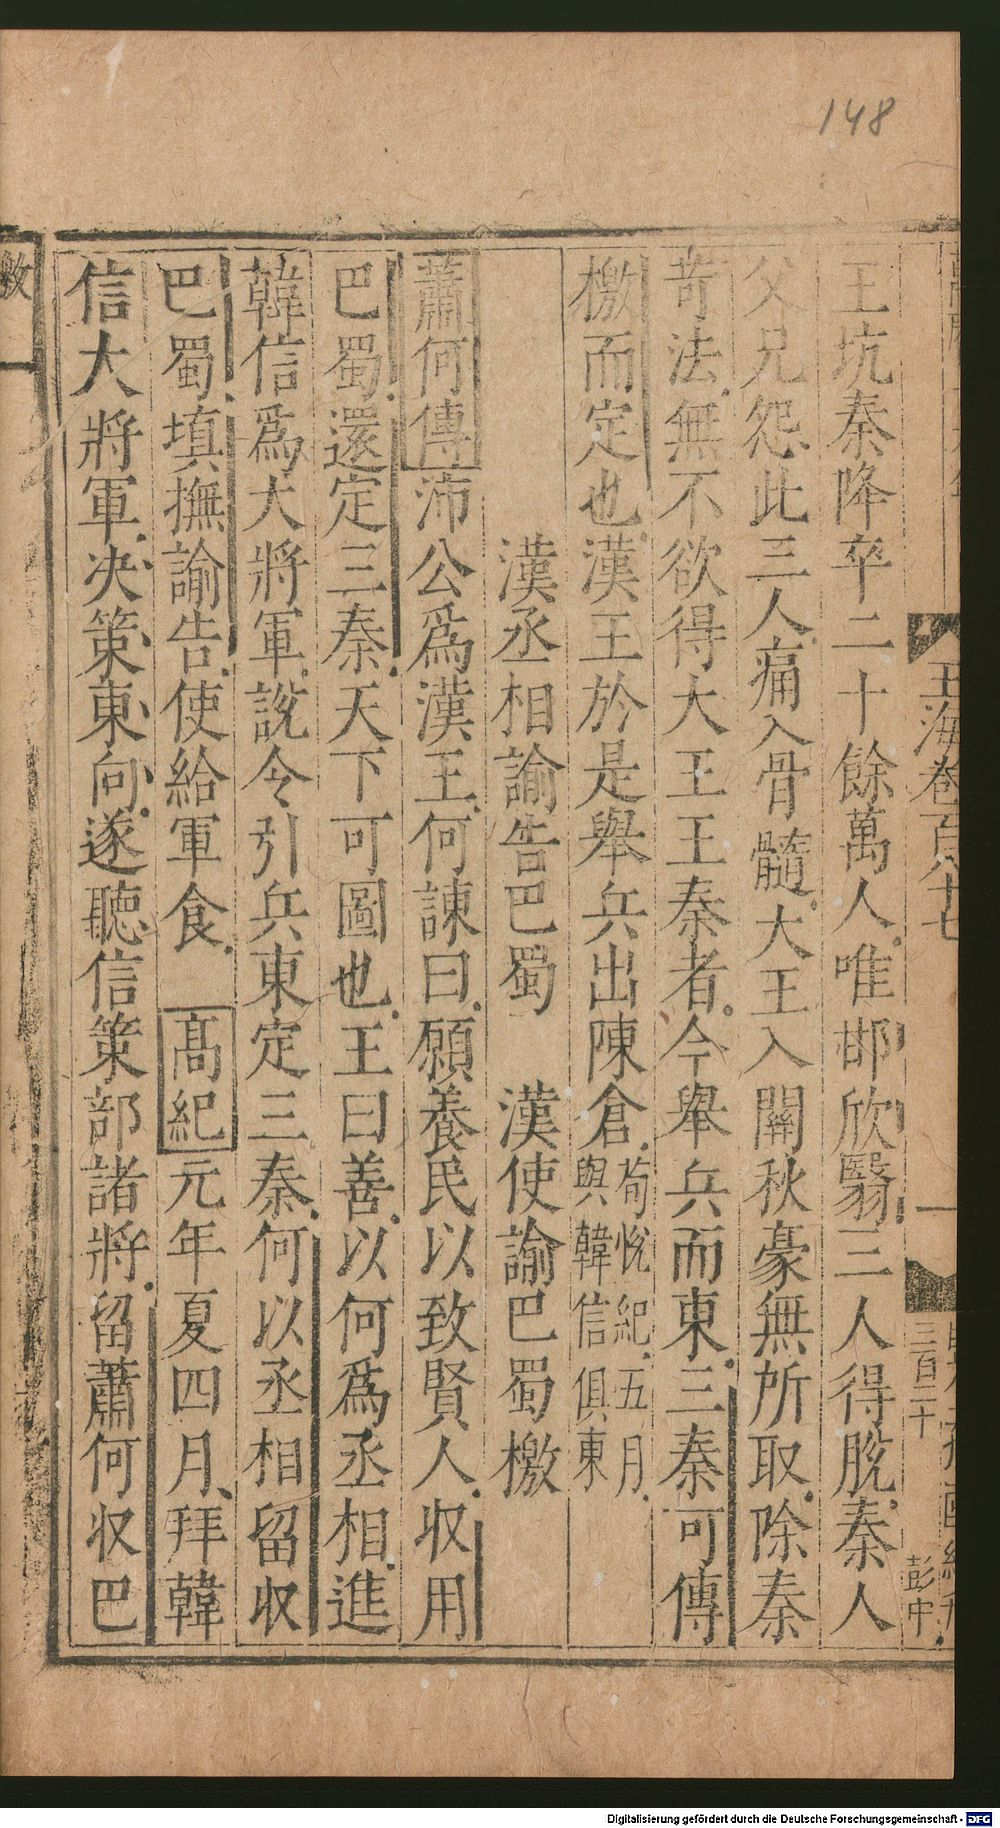 148
玉海卷百八十七
一
三百二十
彭中
王坑秦降卒二十餘萬人唯邯欣翳三人得脫秦人
父兄怨此三人痛入骨髓大王入關秋豪無所取除秦
苛法無不欲得大王王秦者今舉兵而東三秦可傳
檄而定也漢王於是舉兵出陳倉荀悅紀五月與韓信俱東
漢丞相諭告巴蜀 漢使諭巴蜀檄
蕭何傳沛公爲漢王何諫曰願養民以致賢人收用
巴蜀還定三秦天下可圖也王曰善以何爲丞相進
韓信爲大將軍說令引兵東定三秦何以丞相留收
巴蜀填撫諭告使給軍食 高紀元年夏四月拜韓
信大將軍決策東向遂聽信策部諸將留蕭何收巴
檄
Digitalisierung gefördert durch die Deutsche Forschungsgemeinschaft - DFG